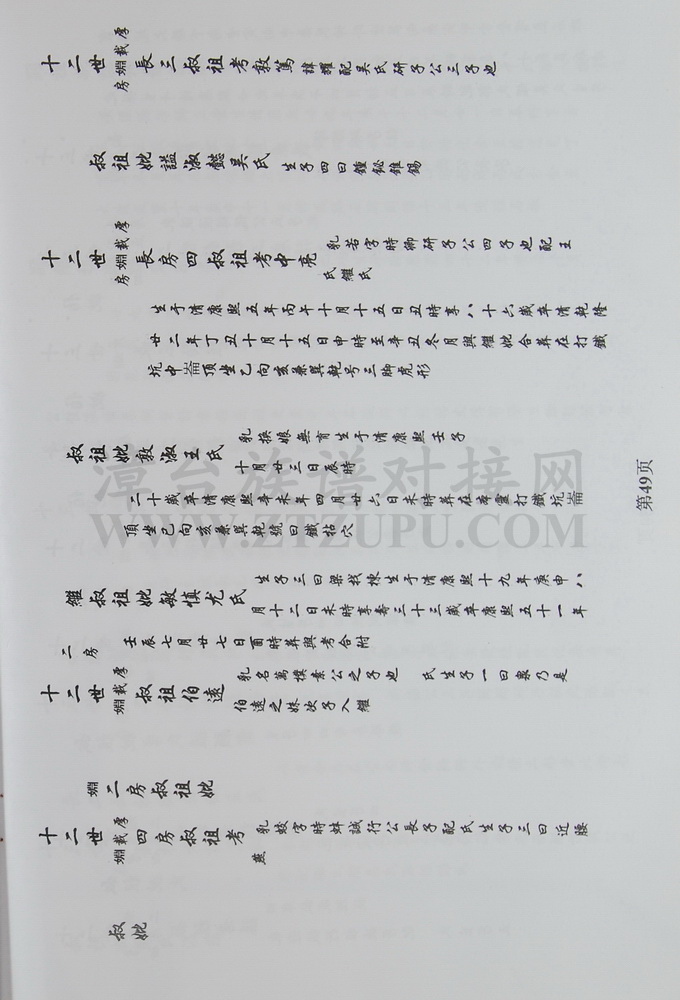 十二世 厚載 嫺房 長三叔祖考敦篤 諱職配吳氏研子公三子也
叔祖妣謚淑懿吳氏 生子四曰鍾鉍錐錫
十二世 厚載 嫺房 長房四叔祖考中亮 乳若字時卿研子公四子也配王
氏繼氏
生于清康熙五年丙午十月十五日丑時享八十六歲卒清乾隆
廿二年丁丑十月十五日申時至辛丑冬月與繼妣合葬在打鐵
坑中崙頂坐巳向亥兼巽乾号三腳虎形
叔祖妣敦淑王氏 乳損娘無育生于清康熙壬子
十月廿三日辰時
二十歲卒清康熙辛未年四月廿六日未時葬在 打鐵坑崙
頂坐巳向亥兼巽乾號曰鐵枯穴
繼叔祖妣敏慎尤氏 生子三曰梁找棟生于清康熙十九年庚申八
月十二日未時享壽三十三歲卒康熙五十一年
壬辰七月廿七日酉時葬與考合附
二房
十二世 厚載 嫺 叔祖伯遠 乳名萬樸素公之子也 氏生子一曰泉乃是
伯遠之妹次子入繼
嫺二房叔祖妣
十二世 厚載 嫺 四房叔祖考 乳蛟字時蚌誠行公長子配氏生子三曰近腰
蔗
叔妣
第49页
漳台族谱对接网
WWW.ZTZUPU.COM